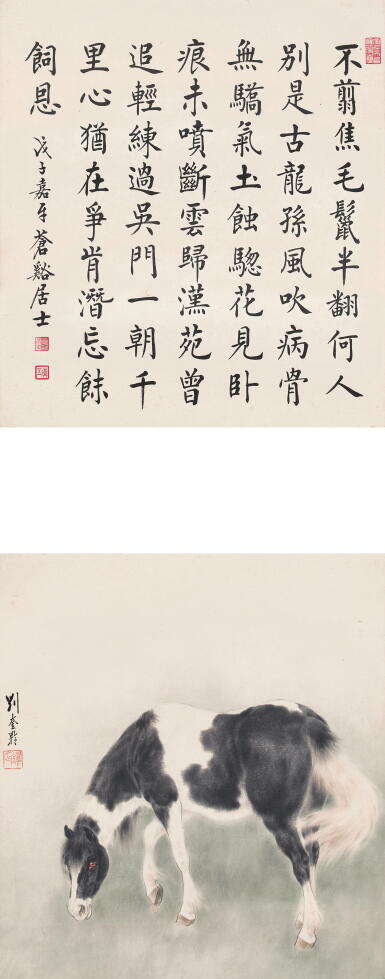 不翦焦毛鬣半翻何人
別是古龍孫風吹病骨
無驕氣土蝕驄花見臥
痕未噴斷雲歸漢苑曾
追輕練過吳門一朝千
里心猶在爭肯潛忘餗
飼恩
戊子嘉平蒼谿居士
劉奎齡